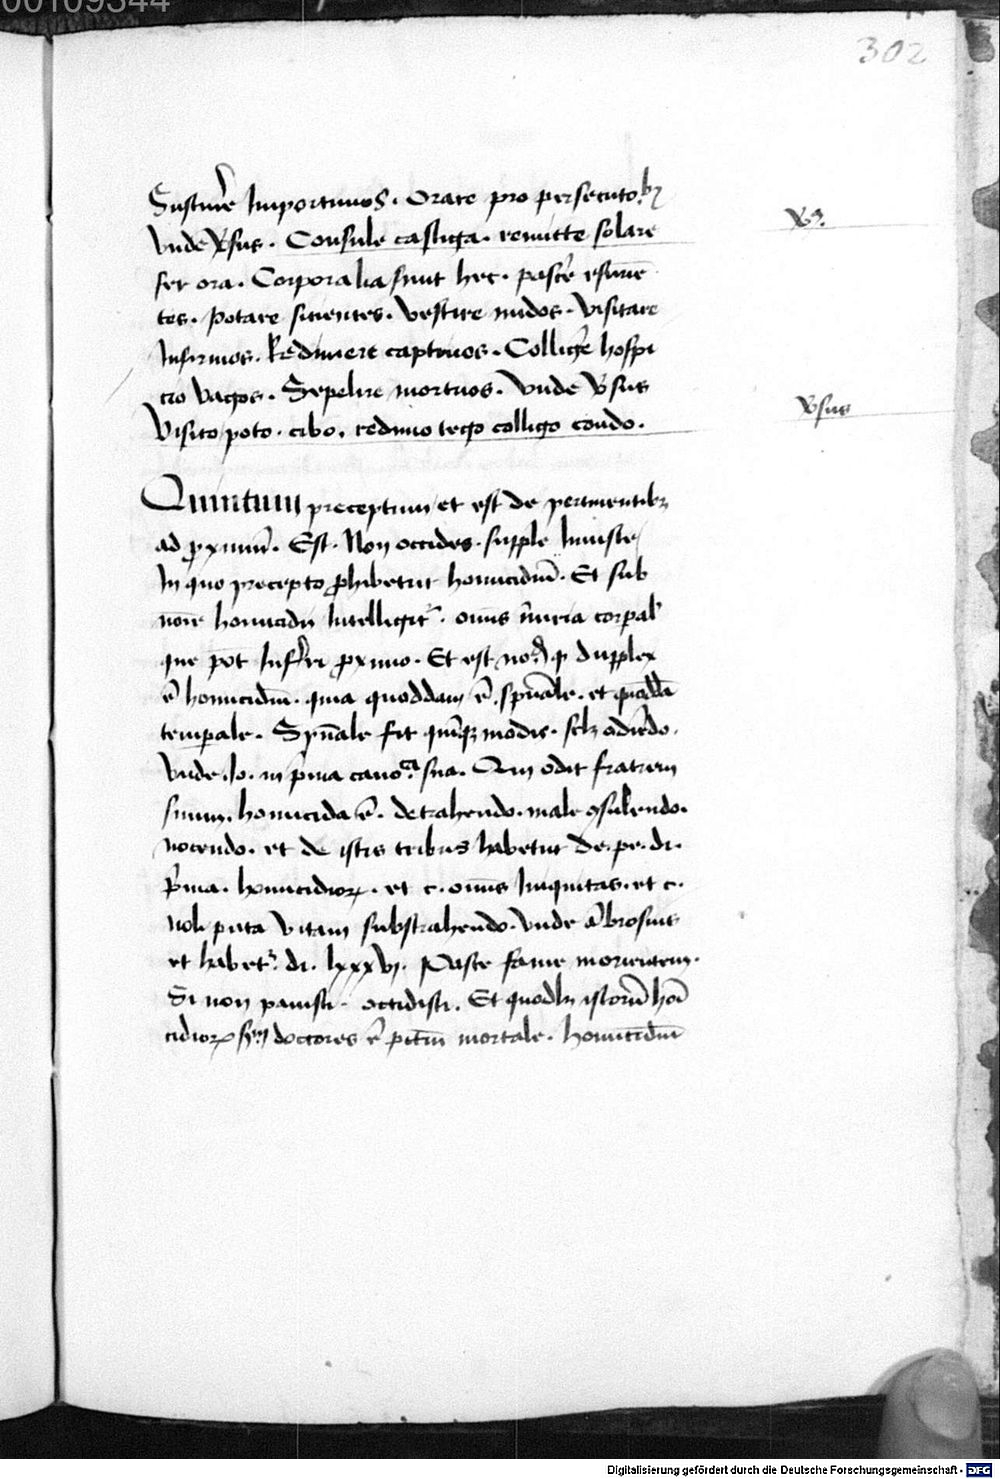 00109344
302
Sustinē̄e Importunos. Orate pro persecutoꝛbꝫ
Vnde v̄sus. Consule castiga. remitte solare
fer ora. Corporalia sunt hec. pascē̄ esuriē
tes. Potare sitientes. Vestire nudos. Visitare
Infirmos. Redimere captiuos. Colligē̄ hospi
cio vagos. Sepelire mortuos. Vnde v̄sus
Visito poto. cibo. redimo tego colligo condo.
v̄sus
Quintum preceptum et est de pertinentibꝫ
ad ꝓximū. Est. Non occides. supple Iniuste
In quo precepto ꝓhibetur homicidiū. Et sub
noīe homicidij Intelligit᷑. omīs īniuria corꝑal᷑
que pōt Inferri ꝓximo. Et est nō̄d ꝙ duplex
ē homicidiū. quia quoddam ē. spūāle. et quodda̅
temꝑale. Spūale fit quīqꝫ modis. sclꝫ odiēdo.
Vnde. Io. in p̄ma canoᵃ. sua. Qui odit fratrem
suum. homicida ē. detrahendo. male ꝯsulendo.
nocendo. et de istis tribus habetur de. pe. di.
p̄ma. homicidioꝝ. et c. omīs Iniquitas. et c.
noli puta vitam substrahendo. Vnde ābrosius
et habet᷑. di. lxxxvj. Pasce fame morientem.
Si non pauisti. occidisti. Et quodlꝫ istorū homi
cidioꝝ scᵐ doctores ē pctm̄ mortale. homicidiū
Digitalisierung gefördert durch die Deutsche Forschungsgemeinschaft - DFG